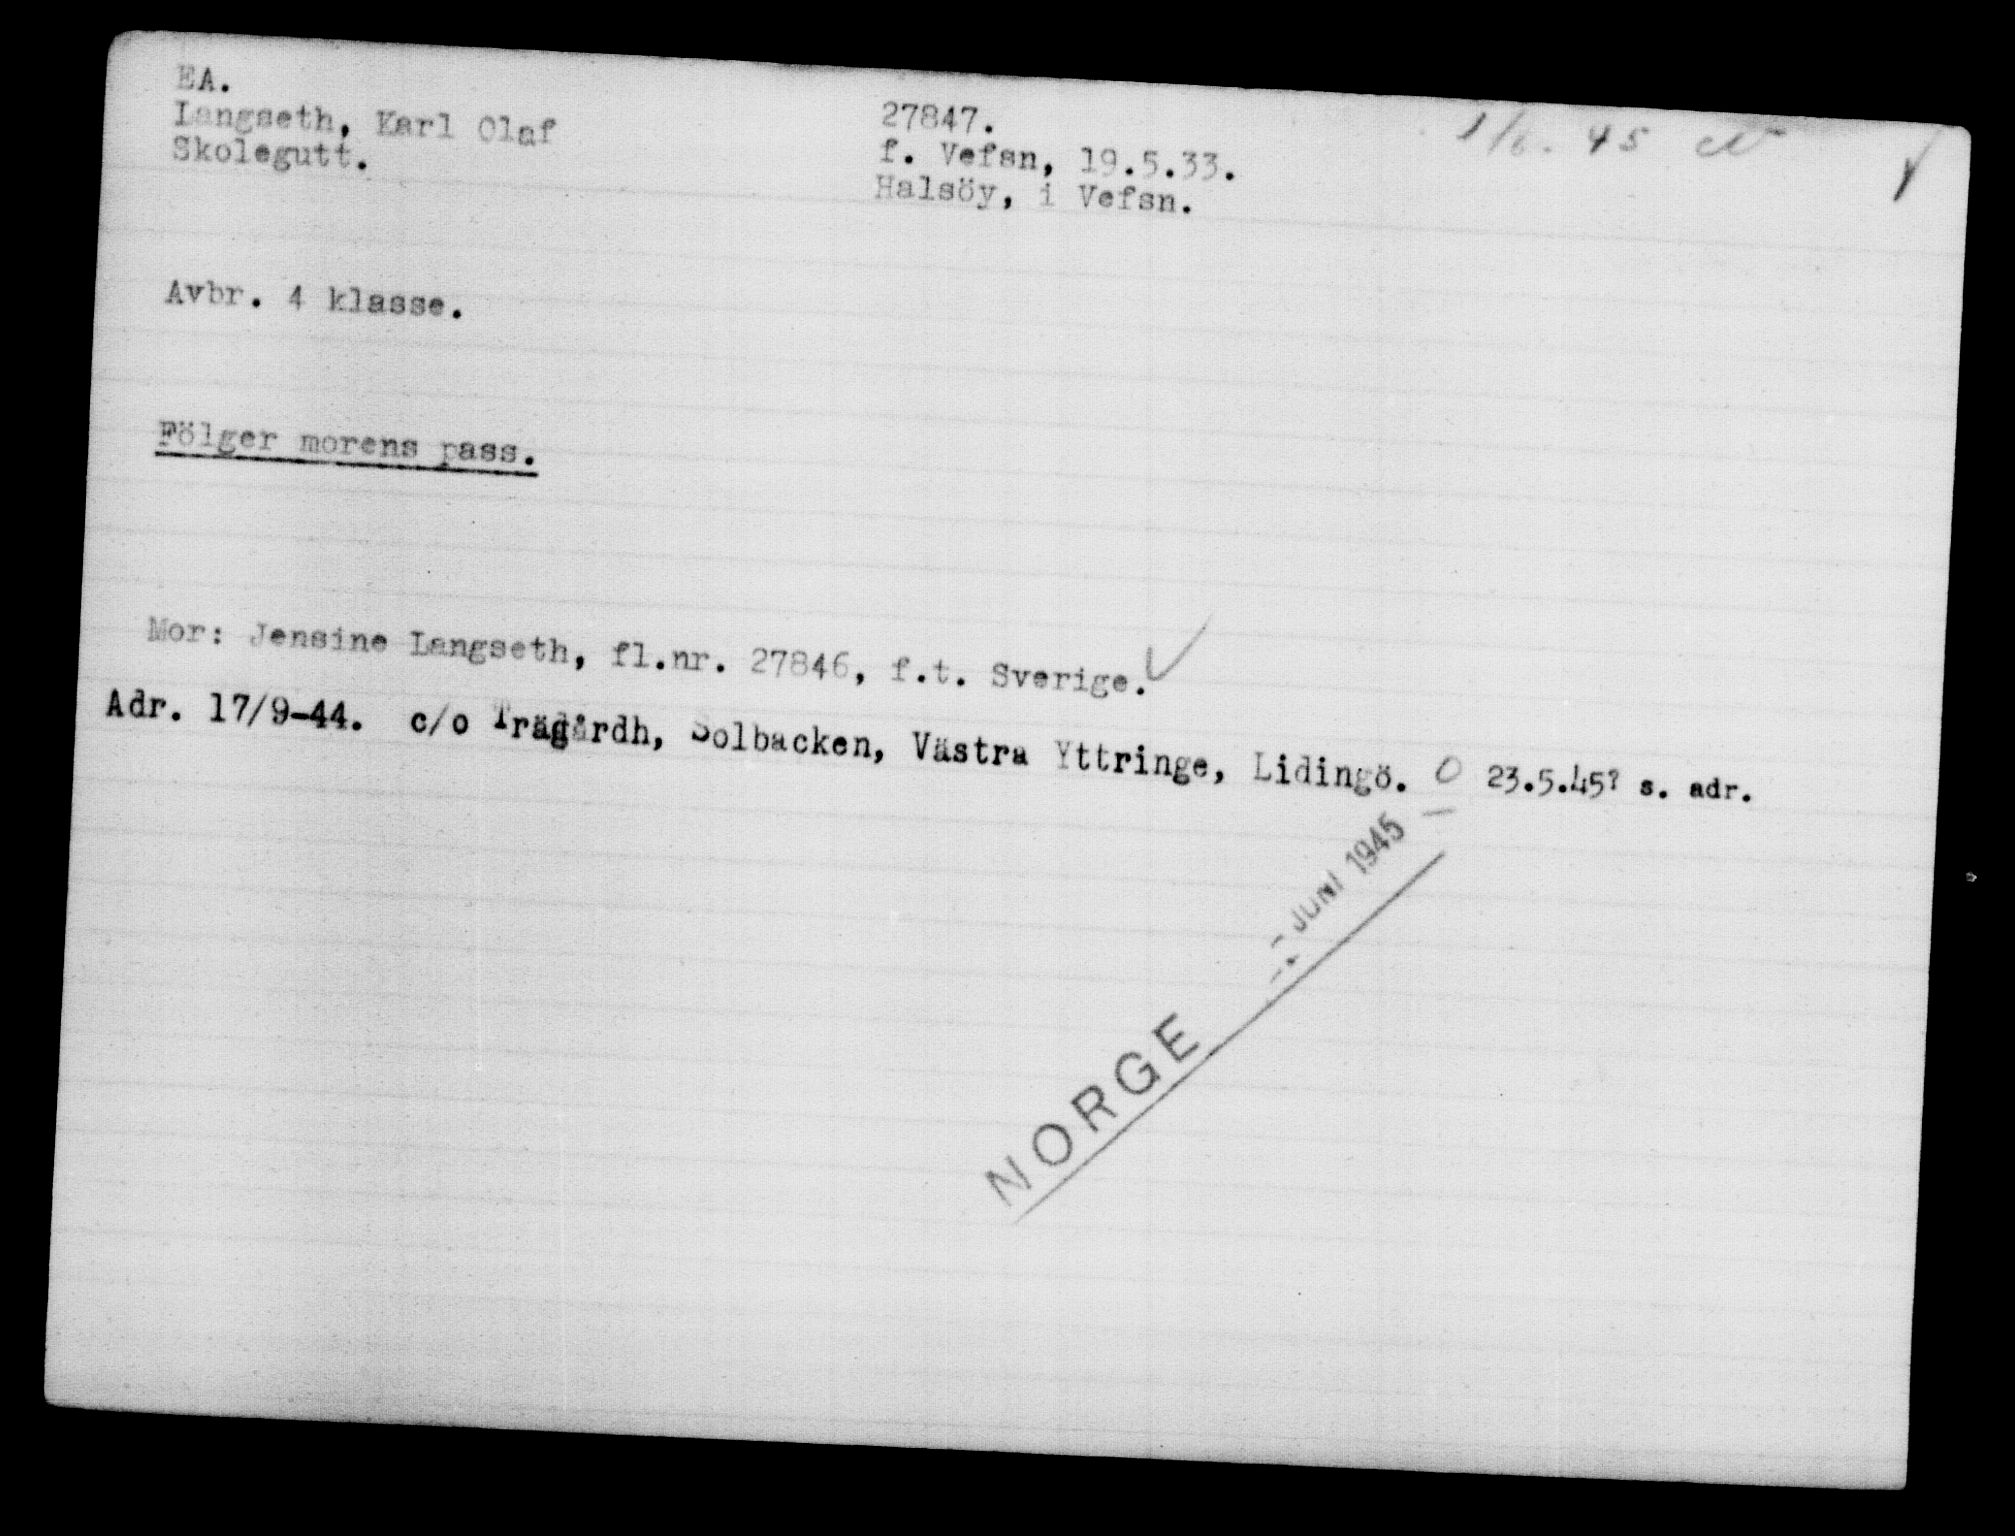 EA.
Langseth, Karl Olaf
Skolegutt.
27847.
f. Vefsn, 19.5.33.
Halsöy, i Vefsn.
1/6. 45
Avbr. 4 klasse.
Fölger morens pass.
Mor: Jensine Langseth, fl.nr. 27846, f.t. Sverige.
Adr. 17/9-44. c/o Trägårdh, Solbacken, Västra Yttringe, Lidingö. O 23.5.45? s. adr.
JUNI 1945
NORGE